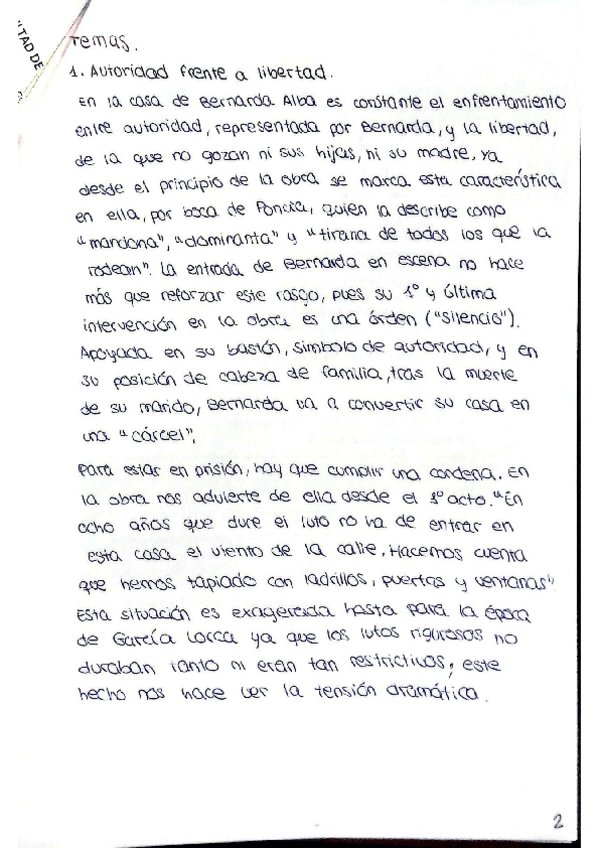 "TAD DE
Temas.
1. Autoridad frente a libertad.
En la casa de Bernarda Alba es constante el enfrentamiento
entre autoridad, representada por Bernarda, y la libertad,
de la que no gozan ni sus hijas, ni su madre, ya
desde el principio de la obra se marca esta característica
en ella, por boca de Poncia, quien la describe como
"mandona", "dominanta" y "tirana de todos los que la
rodean". La entrada de Bernarda en escena no hace
más que reforzar este rasgo, pues su 1º y última
intervención en la obra es una órden ("Silencio").
Apoyada en su bastón, simbolo de autoridad, y en
su posición de cabeza de familia, tras la muerte
de su marido, Bernarda va a convertir su casa en
una "cárcel",
Para estar en prisión, hay que cumplir una condena. En
la obra nos advierte de ella desde el 1º acto. "En
ocho años que dure el luto no ha de entrar en
esta casa el viento de la calle. Hacemos cuenta
que hemos tapiado con ladrillos, puertas y ventanas"
Esta situación es exagerada hasta para la época
de García Lorca ya que los lutos rigurosos no
duraban tanto ni eran tan restrictivos, este
hecho nos hace ver la tensión dramática.
2